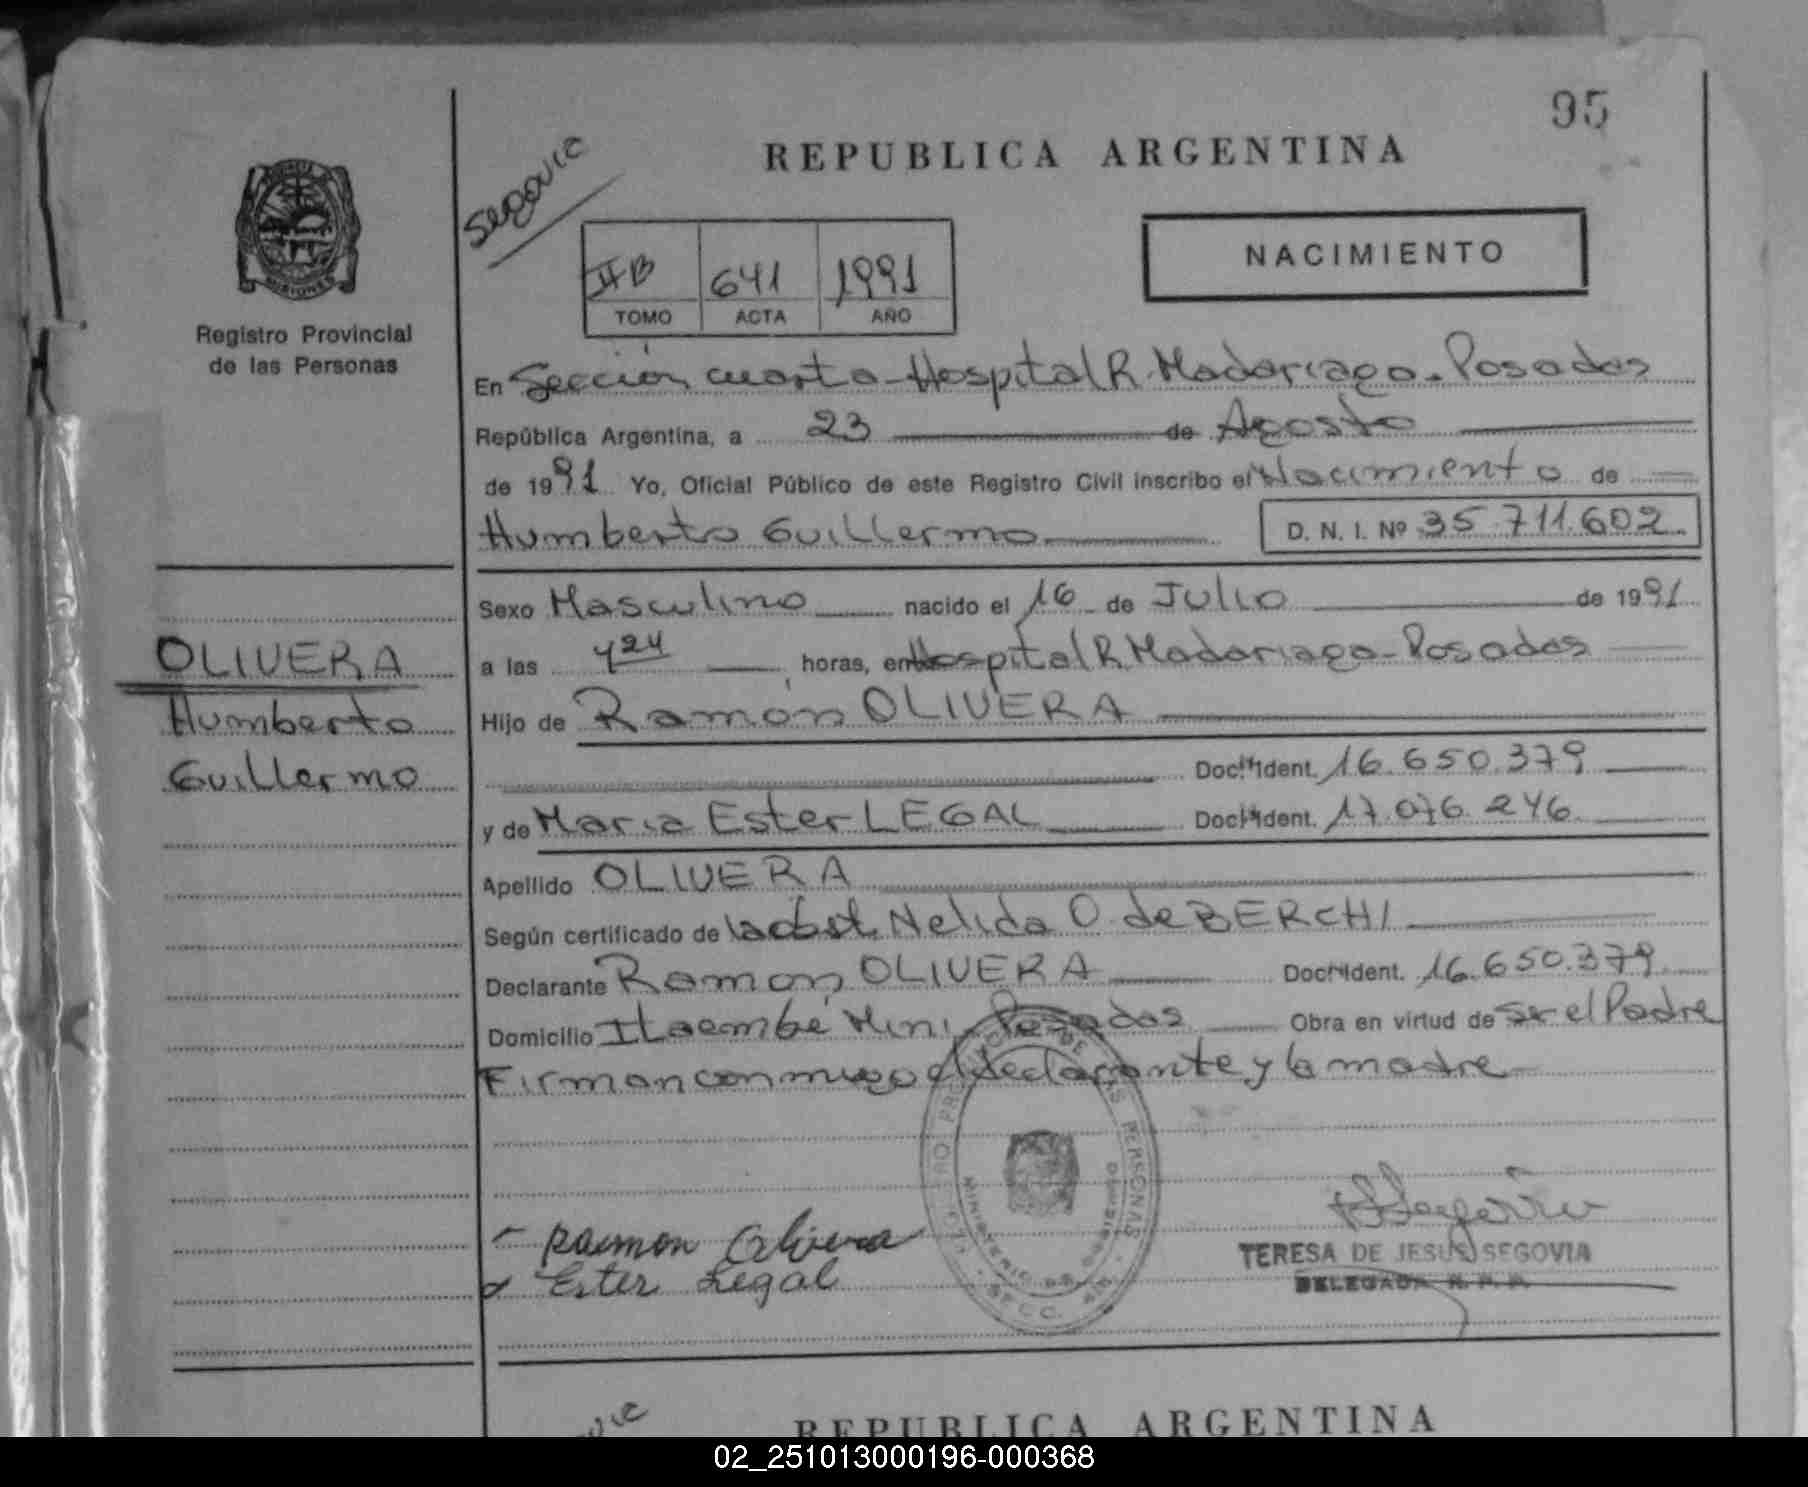 95
REPUBLICA ARGENTINA
Segovia
NACIMIENTO
IIB 641 1991
TOMO ACTA AÑO
MISIONES
Registro Provincial
de las Personas
En Sección cuarta - Hospital R. Madariaga - Posadas
República Argentina, a 23 de Agosto
de 1991 Yo, Oficial Público de este Registro Civil inscribo el Nacimiento de
Humberto Guillermo D. N. I. Nº 35.711.602
Sexo Masculino nacido el 16 de Julio de 1991
OLIVERA
a las 4 24 horas, en Hospital R. Madariaga - Posadas
Humberto
Hijo de Ramón OLIVERA
Guillermo
Doc. Ident. 16.650.379
y de Maria Ester LEGAL Doc. Ident. 17.076.246
Apellido OLIVERA
Según certificado de la obst. Nelida O. de BERCHI
Declarante Ramón OLIVERA Doc. Ident. 16.650.379
Domicilio Itaembé Mini, Posadas Obra en virtud de Ser el Padre
Firman conmigo el declarante y la madre
Ramon Olivera
Ester Legal
TERESA DE JESUS SEGOVIA
DELEGADA R. P. P.
REPUBLICA ARGENTINA
02_251013000196-000368